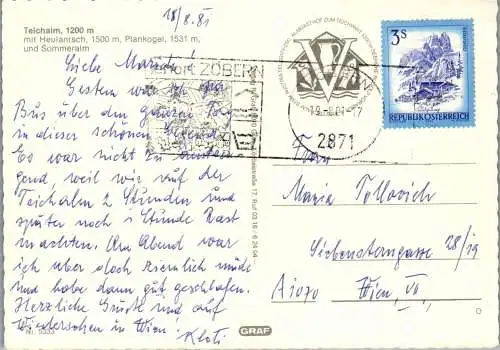 18/8.81
Teichalm, 1200 m
mit Heulantsch, 1500 m, Plankogel, 1531 m,
und Sommeralm
Liebe
Gestern war ich per
Bus über den ganzen Tag
in dieser schönen Gegend.
Es war nicht zu
gend, weil wir auf der
Teichalm 2 Stunden und
später noch 1 Stunde Rast
machten. Am Abend war
ich aber doch ziemlich müde
und habe dann gut geschlafen.
Herzliche Grüße und auf
Wiedersehen in Wien!
Nr. 5333
GRAF
ZÖBERN
2871
3S
REPUBLIK ÖSTERREICH
Frau
Maria
Siebensterngasse 28/19
A 1070 Wien, VII.